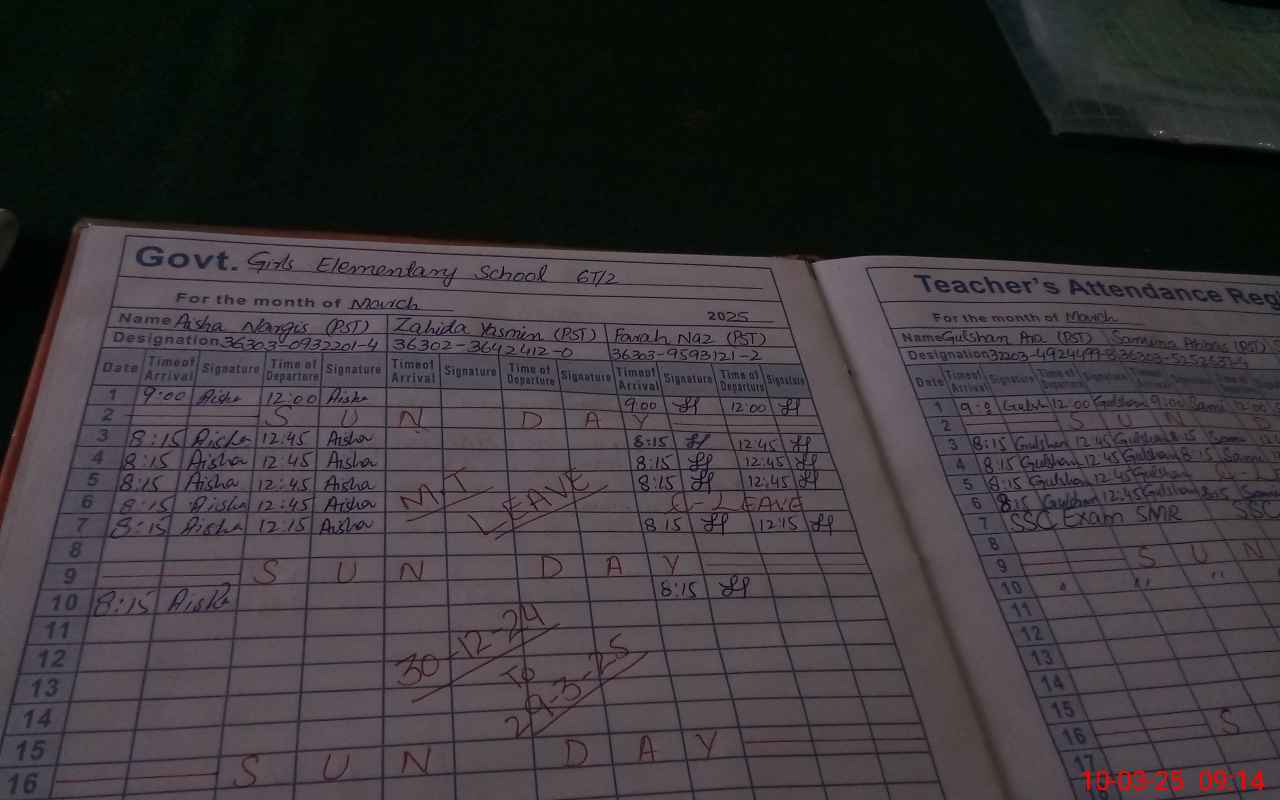 Govt. Girls Elementary School 6T/2
For the month of March 2025
Name Aisha Nargis (PST) Zahida Yasmin (PST) Farah Naz (PST)
Designation 36303-0932201-4 36302-3642412-0 36303-9593121-2
Date Time of Arrival Signature Time of Departure Signature Time of Arrival Signature Time of Departure Signature Time of Arrival Signature Time of Departure Signature
1 9:00 Aisha 12:00 Aisha 9:00 12:00
2 S U N D A Y
3 8:15 Aisha 12:45 Aisha 8:15 12:45
4 8:15 Aisha 12:45 Aisha 8:15 12:45
5 8:15 Aisha 12:45 Aisha 8:15 12:45
6 8:15 Aisha 12:45 Aisha C-LEAVE
7 8:15 Aisha 12:15 Aisha 8:15 12:15
LEAVE
8
9 S U N D A Y
10 8:15 Aisha 8:15
11
12
13
14
30-12-24
To
29-3-25
15 S U N D A Y
16
Teacher's Attendance Reg
For the month of March
Name Gulshan Ara (PST)
Designation
Date Time of Arrival Signature Time of Departure Signature
1 Gulshan 12:00 Gulshan 9:00 Sami 12:00
2 S U N D
3 8:15 Gulshan 12:45 Gulshan 8:15 Sami
4 8:15 Gulshan 12:45 Gulshan 8:15 Sami
5 8:15 Gulshan 12:45 Gulshan
6 8:15 Gulshan 12:45 Gulshan 8:15 Sami
7 SSC Exam SMR SSC
8
9 S U N
10 " " "
11
12
13
14
15
16 S
17
10-03-25 09:14